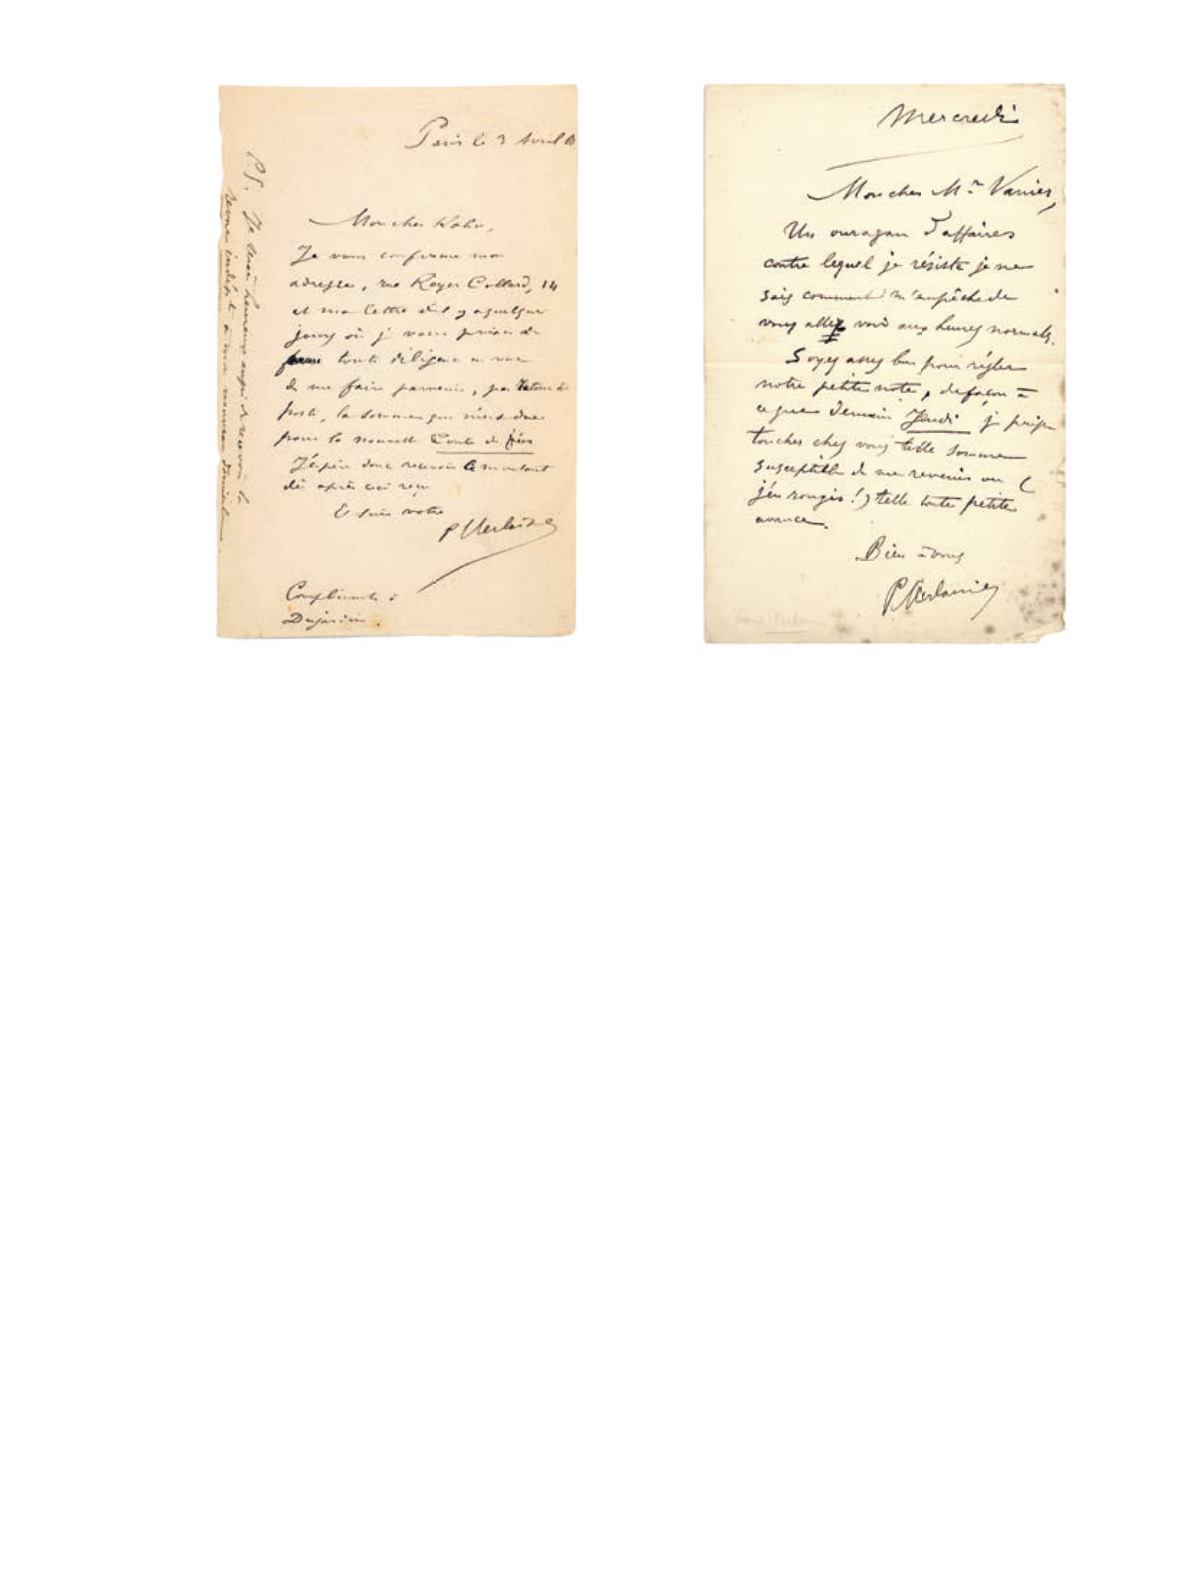 Paris le 3 Avril
Mon cher Kahn,
Je vous confirme mon
adresse, rue Royer Collard, 14
et ma lettre d'il y a quelques
jours où je vous priais de
faire toute diligence en vue
de me faire parvenir, par retour de
poste, la somme qui m'est due
pour la nouvelle Conte de fées
J'espère donc recevoir le montant
dès après ceci reçu
Et suis votre
P Verlaine
Compliments à
Dujardin.
P.S. Je serai heureux aussi de recevoir la
revue indépte à mon nouveau domicile.
Mercredi
Mon cher Mr Vanier,
Un ouragan d'affaires
contre lequel je résiste je ne
sais comment m'empêche de
vous aller voir aux heures normales.
Soyez assez bon pour régler
notre petite note, de façon à
ce que demain Jeudi je puisse
toucher chez vous telle somme
susceptible de me revenir ou (
j'en rougis!) telle toute petite
avance.
Bien à vous
P. Verlaine